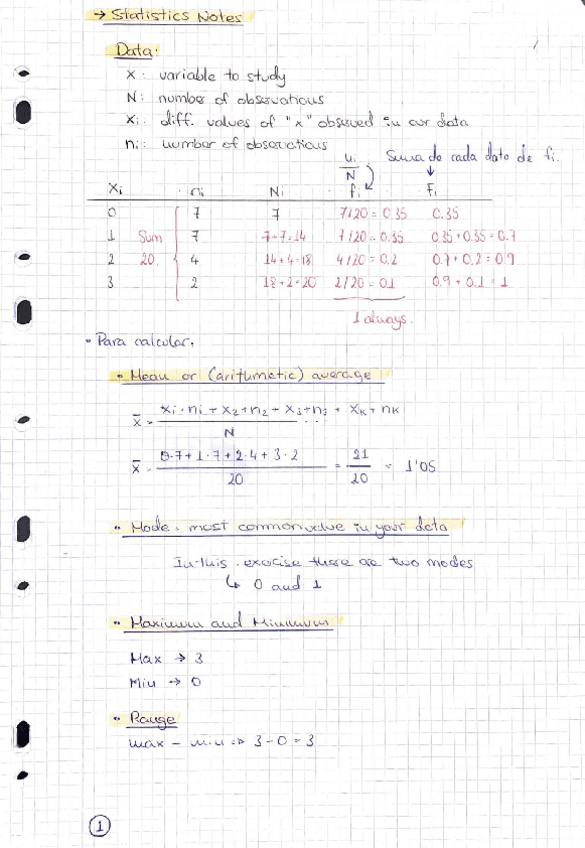 → Statistics Notes
Data:
X: variable to study
N: number of observations
Xi: diff. values of "x" observed in our data
ni: number of observations
ni/N Suma de cada dato de fi.
Xi ni Ni fi Fi
0 7 7 7/20 = 0.35 0.35
1 Sum 7 7+7=14 7/20=0.35 0.35+0.35=0.7
2 20 4 14+4=18 4/20=0.2 0.7+0.2=0.9
3 2 18+2=20 2/20=0.1 0.9+0.1=1
1 always.
• Para calcular,
• Mean or (aritmetic) average
x̄ = Xi·ni + X2+n2 + X3+n3 + ... XK+nK / N
x̄ = 0·7+1·7+2·4+3·2 / 20 = 21/20 = 1'05
• Mode: most common value in your data
In this exercise there are two modes
↳ 0 and 1
• Maximum and Minimum
Max → 3
Min → 0
• Range
max - min => 3-0=3
1